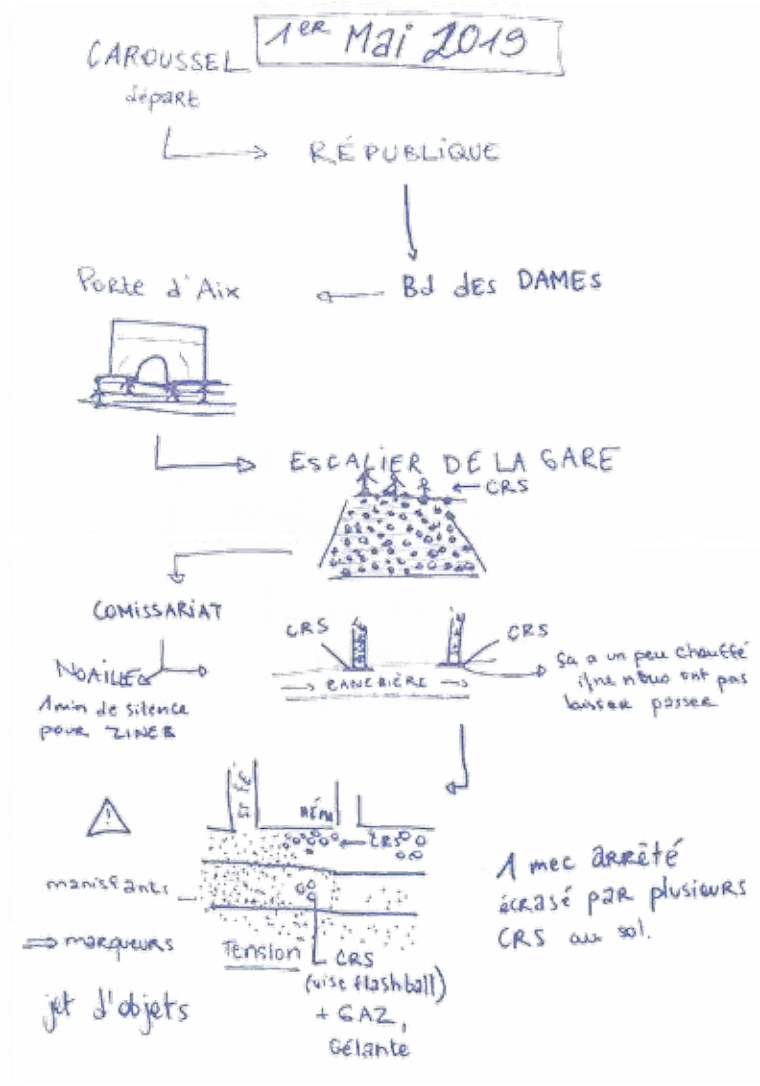 1ER Mai 2019
CAROUSSEL
départ
RÉPUBLIQUE
Bd dES DAMES
Porte d'Aix
ESCALIER DE LA GARE
CRS
COMISSARIAT
NOAILLE
1 min de silence
pour ZINEB
CRS
CRS
CANEBIÈRE
Sa a un peu chauffé
ils ne nous ont pas
laisser passer
ST FÉ
CRS
manisfants
marqueurs
jet d'objets
Tension
CRS
(vise flashball)
+ GAZ,
Gélante
1 mec arrêté
écrasé par plusieurs
CRS au sol.